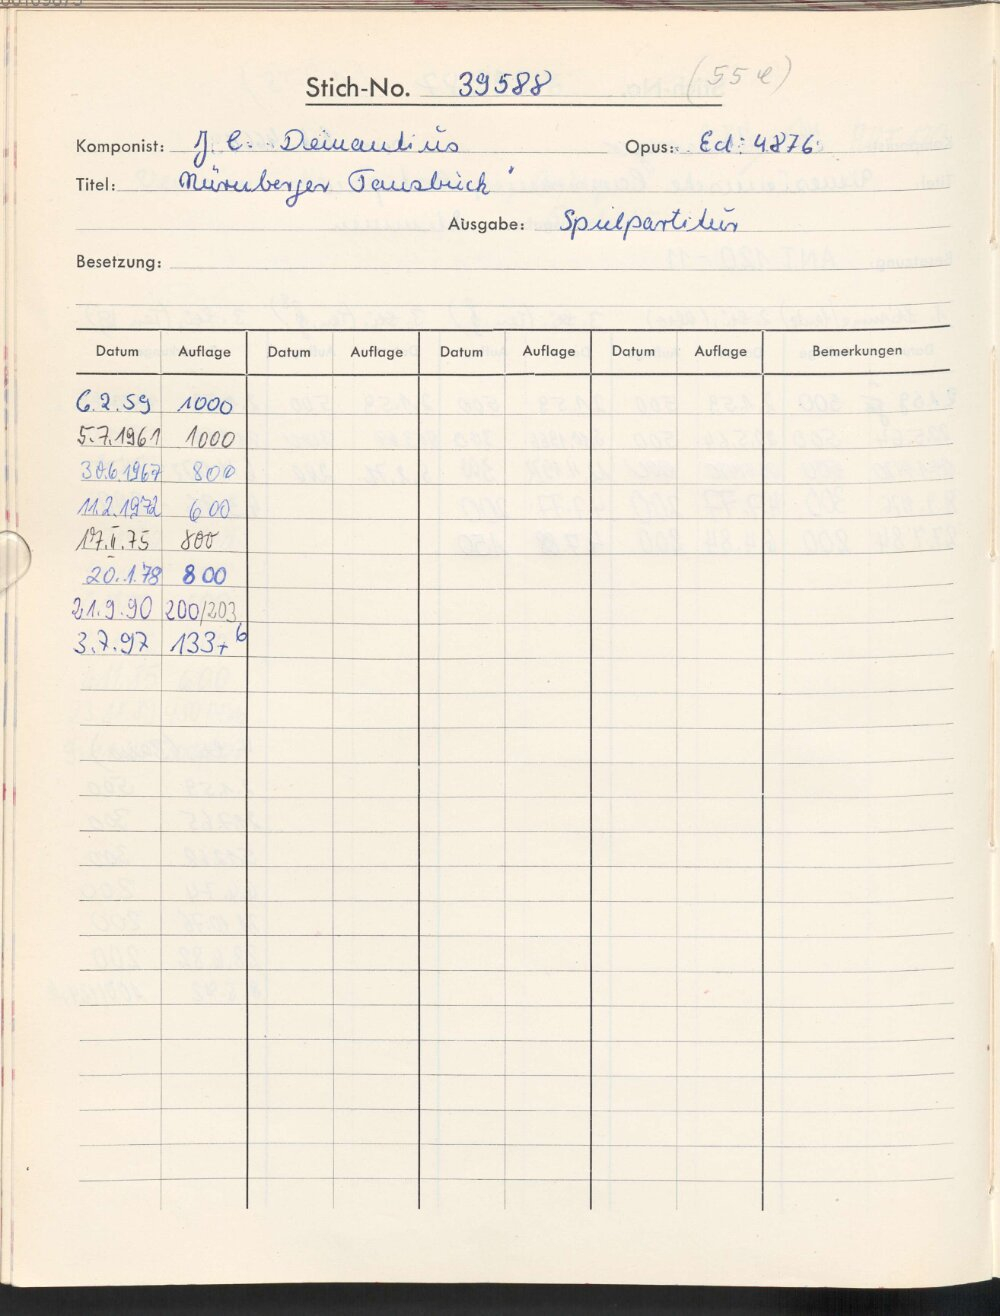 Stich-No. 39588 (55 e)
Komponist: J. C. Demantius Opus: Ed: 4876
Titel: Nürnberger Tanzbuch
Ausgabe: Spielpartitur
Besetzung:
Datum Auflage Datum Auflage Datum Auflage Datum Auflage Bemerkungen
6.2.59 1000
5.7.1961 1000
30.6.1967 800
11.2.1972 600
17.II.75 800
20.1.78 800
21.9.90 200/203
3.7.97 133+6